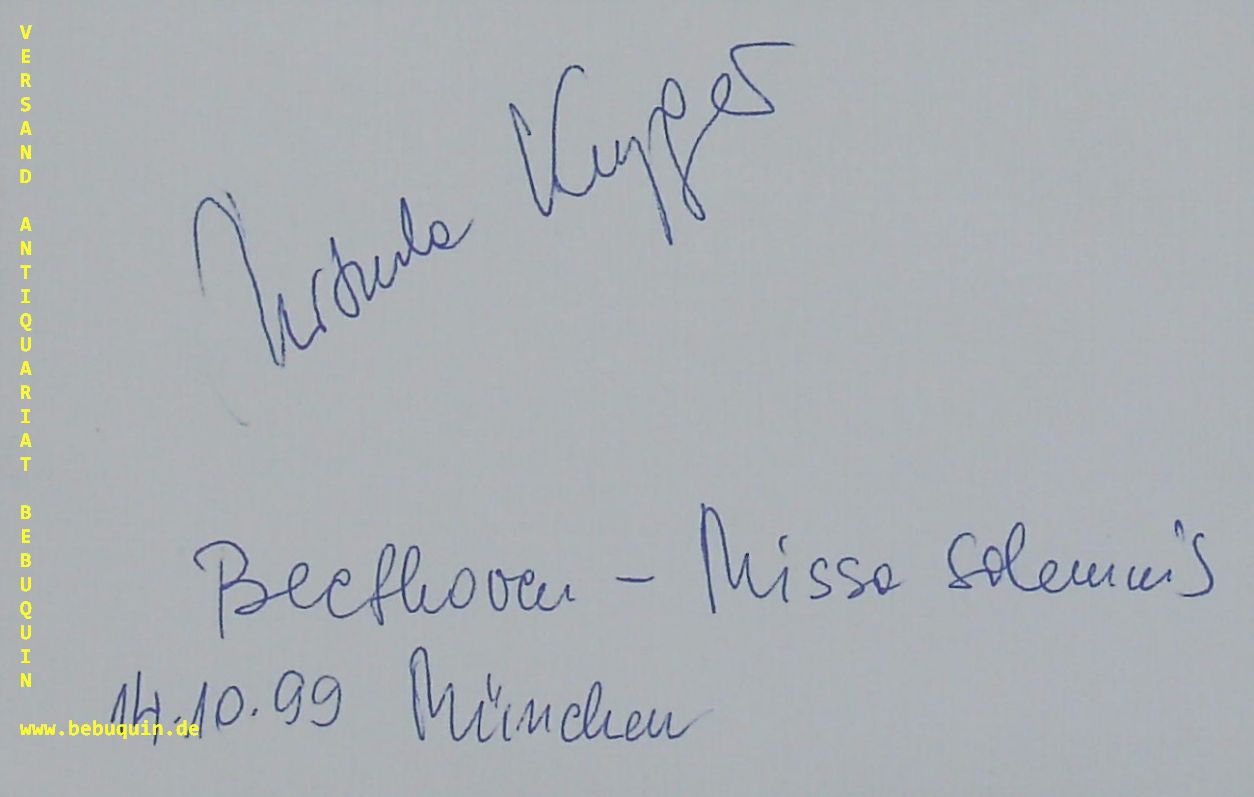 VERSAND ANTIQUARIAT BEBUQUIN
Beethoven – Missa Solemnis
14.10.99 München
www.bebuquin.de